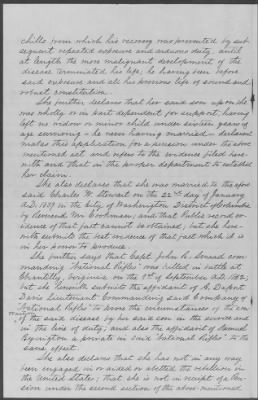 chills from which his recovery was prevented by sub
sequent repeated exposure and arduous duty, until
at length the more malignant development of the
disease terminated his life; he having been before
said exposure and all his previous life of sound and
robust constitution.
She further declares that her said son upon whom she
was wholly or in part dependent for support, having
left no widow or minor child under sixteen years of
age surviving - he never having married - declarant
makes this application for a pension under the above
mentioned act and refers to the evidence filed here-
with and that in the proper department to establish
her claim.
She also declares that she was married to the afore
said Charles Stewart on the 22nd day of January
A.D. 1839 in the City of Washington District of Columbia
by Reverend Mr Cookman; and that Public record ev
idence of that fact cannot be obtained, but she here-
with submits the best evidence of that fact which it is
in her power to produce.
She further says that Capt John R. Smead com
manding "National Rifles" was killed in battle at
Chantilly, Virginia on the of September A.D. 1862;
but she herewith submits the affidavit of C. Dupont
Davis Lieutenant Commanding said Company of
"National Rifles" to prove the circumstances of the
of the said disease by her said son in the service and
in the line of duty; and also the affidavit of Samuel
Byington a private in said "National Rifles" to the
same effect.
She also declares that she has not in any way
been engaged in or aided or abetted the rebellion in
the United States; that she is not in receipt of a Pen
sion under the second section of the above-mentioned